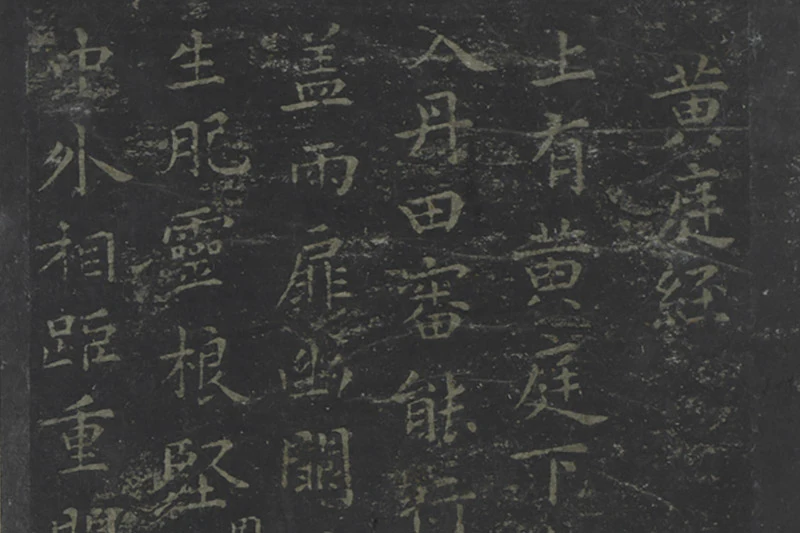 黄庭経
上有黄庭下
入丹田審能
盖兩扉幽關
生肥靈根堅
中外相距重